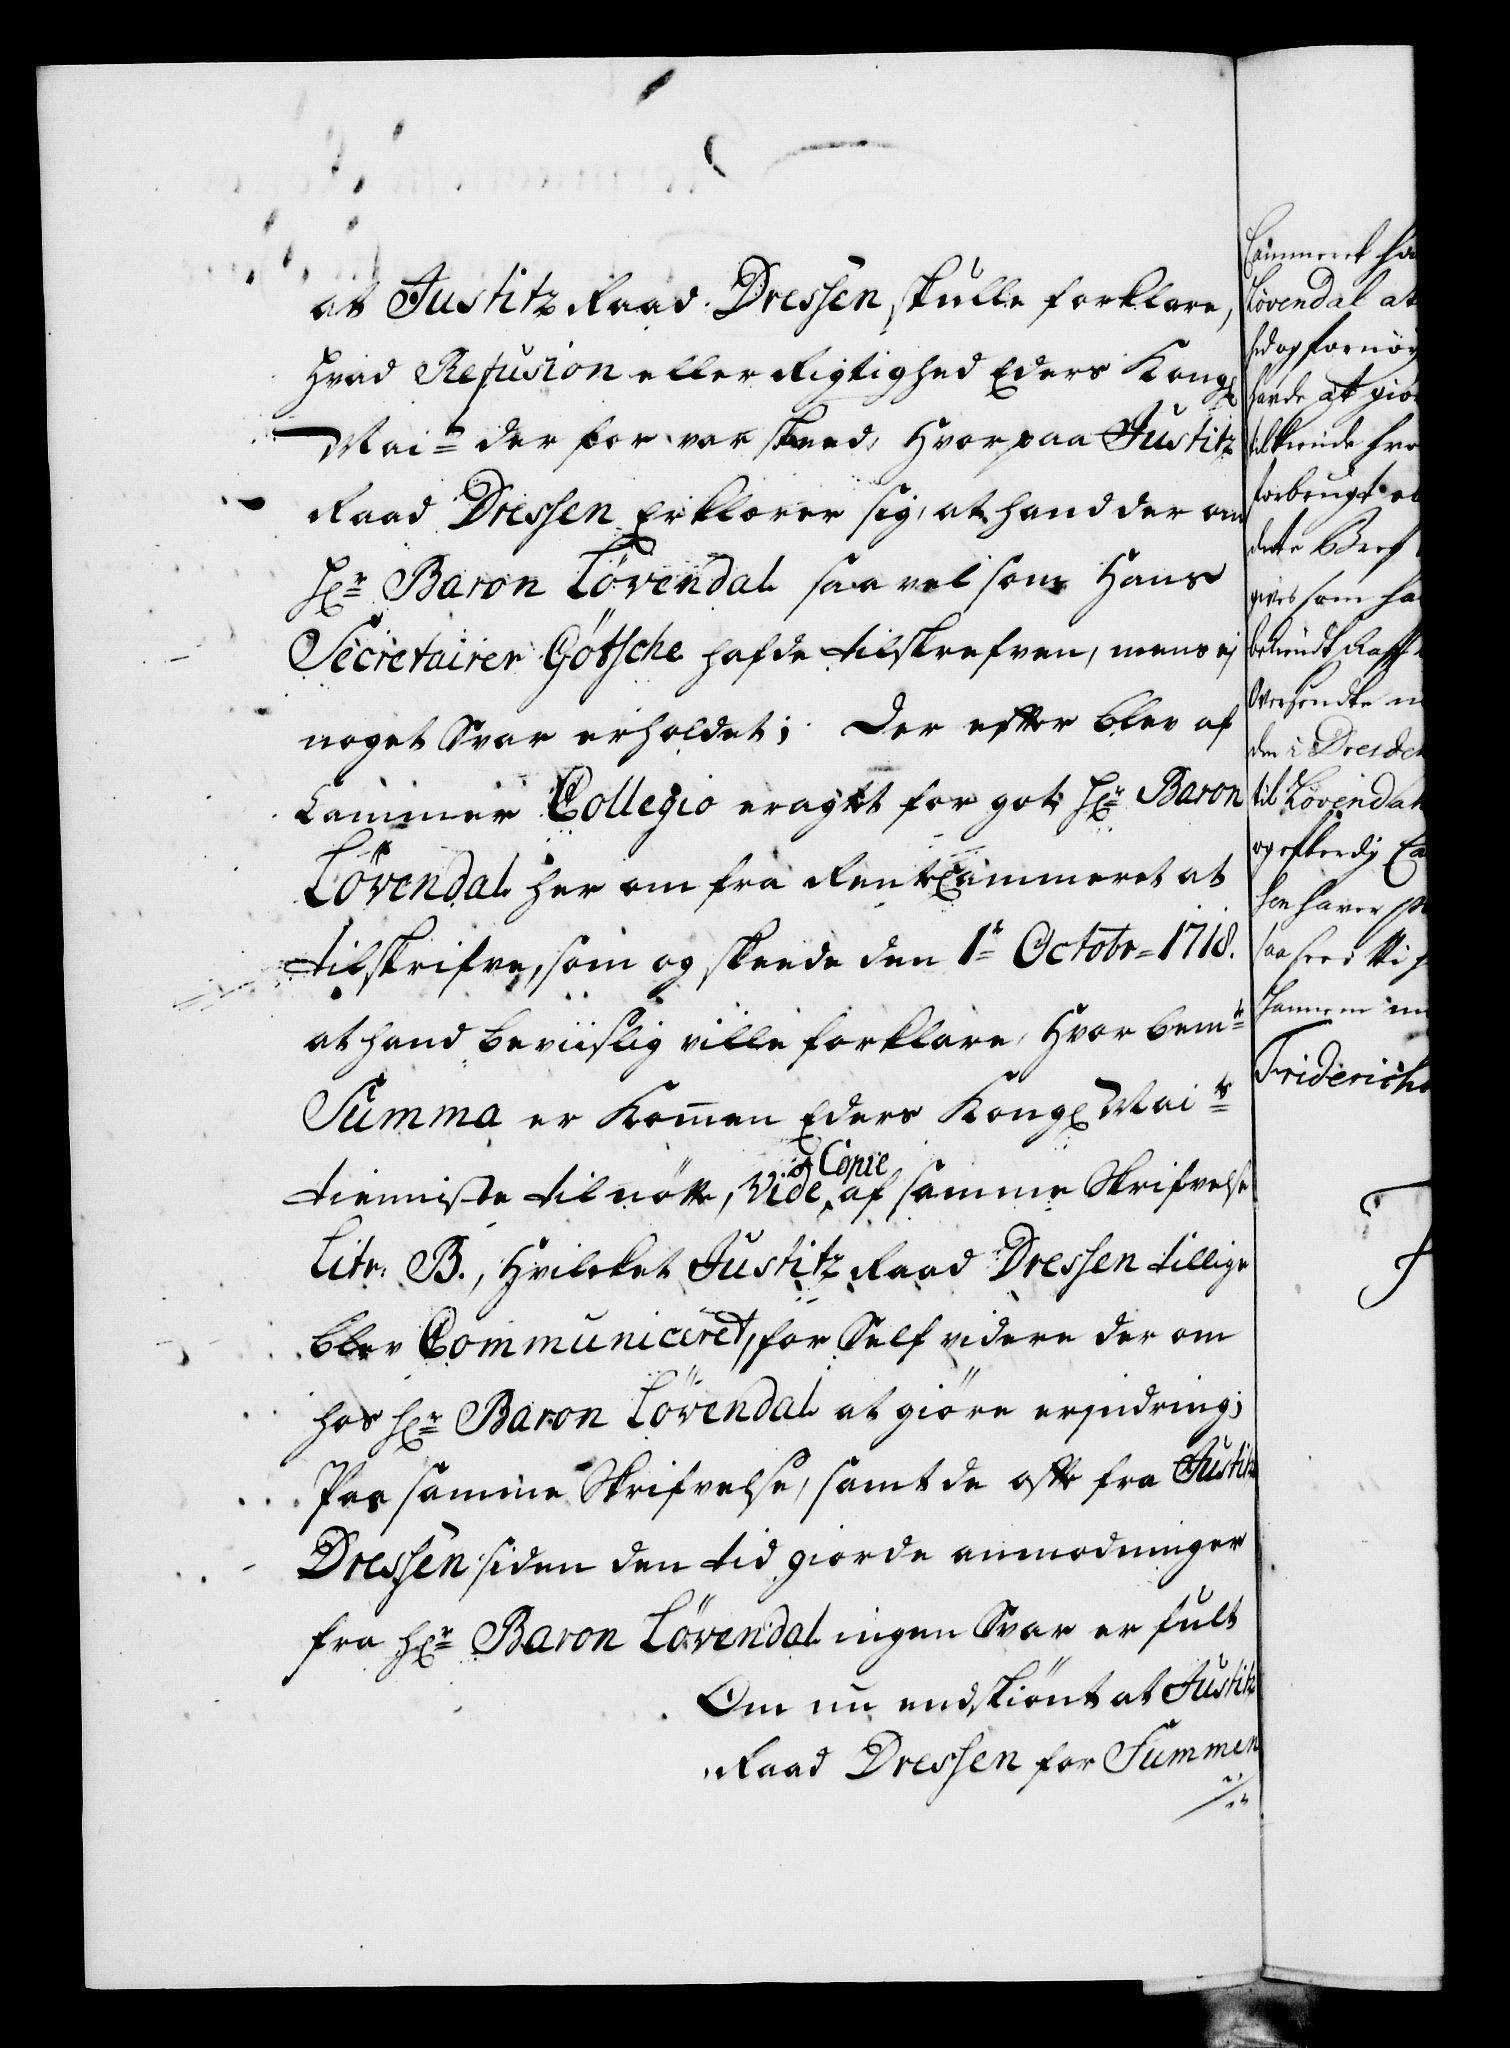 at Justitz Raad Dressen skulle forklare,
Hvad Refusion eller Rigtighed Eders Kongl
Mait der for var skeed, Hvorpaa Justitz
Raad Dressen Erklærer sig, at hand der om
Hr Baron Lövendal saa vel som Hans
Secretairer Götsche hafde tilskrefven, mens ej
noget Svar erholdet; Der efter blev af
Cammer Collegio eragtet for got Hr Baron
Lövendal her om fra RenteCammeret at
tilskrifve, som og skeede den 1te Octobr 1718.
at hand beviislig ville forklare, Hvor bemte
Summa er Komen Eders Kongl Maits
tienniste til nötte, Vide Copie af samme Skrifvelse
Litr. B., Hvilcket Justitz Raad Dressen tillige
blev Communiceret, for Self videre der om
hos Hr Baron Lövendal at giöre erjndring;
Paa samme Skrifvelse, samt de ofte fra Justitz
Dressen siden den tid giorde anmodninger
fra Hr Baron Lövendal ingen Svar er fult
Om nu endskiönt at Justitz
Raad Dressen for Summen
Cammeret
Lövendal at
hed og fornöy
havde at giö
tilkiende
forbrugt
dette Bref
gives som
bekiendt
Oversendte
den i Dresden
til Lövendal
og efterdj
hen haver
saa
Hannem
Friderichs